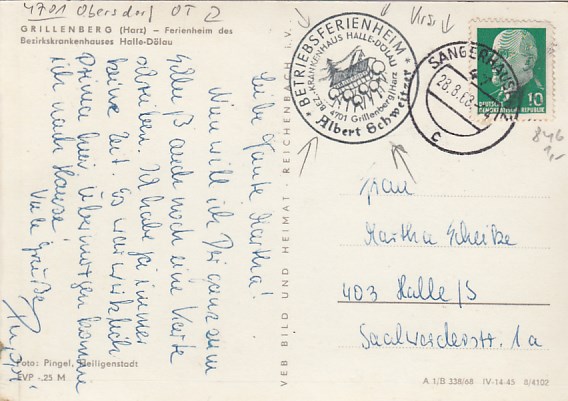 4701 Obersdorf OT 2
GRILLENBERG (Harz) – Ferienheim des
Bezirkskrankenhauses Halle-Dölau
Liebe Tante Martha!
Nun will ich Dir ganz zum
Schluß auch noch eine Karte
schreiben. Ich habe ja immer
keine Zeit. Es war wirklich
prima hier, übermorgen komme
ich nach Hause!
Viele Grüße
Foto: Pingel, Heiligenstadt
EVP -,25 M
VEB BILD UND HEIMAT · REICHENBACH I. V.
BETRIEBSFERIENHEIM
BEZ.KRANKENHAUS HALLE-DÖLAU
4701 Grillenberg/Harz
Albert Schweitzer
SANGERHAUSEN
28.8.68
c
DEUTSCHE
DEMOKRATISCHE
10
Frau
Martha Scheibe
403 Halle/S
Saalwerderstr. 1a
A 1/B 338/68 IV-14-45 8/4102